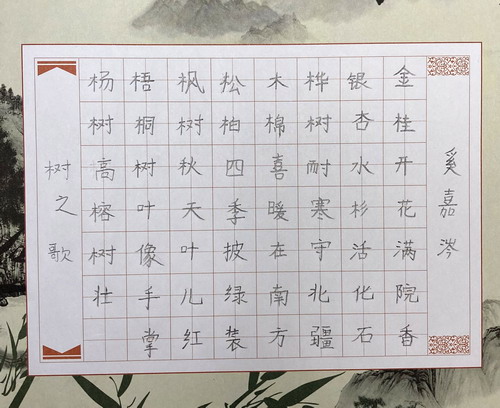 树之歌
杨树高榕树壮
梧桐树叶像手掌
枫树秋天叶儿红
松柏四季披绿装
木棉喜暖在南方
桦树耐寒守北疆
银杏水杉活化石
金桂开花满院香
奚嘉涔